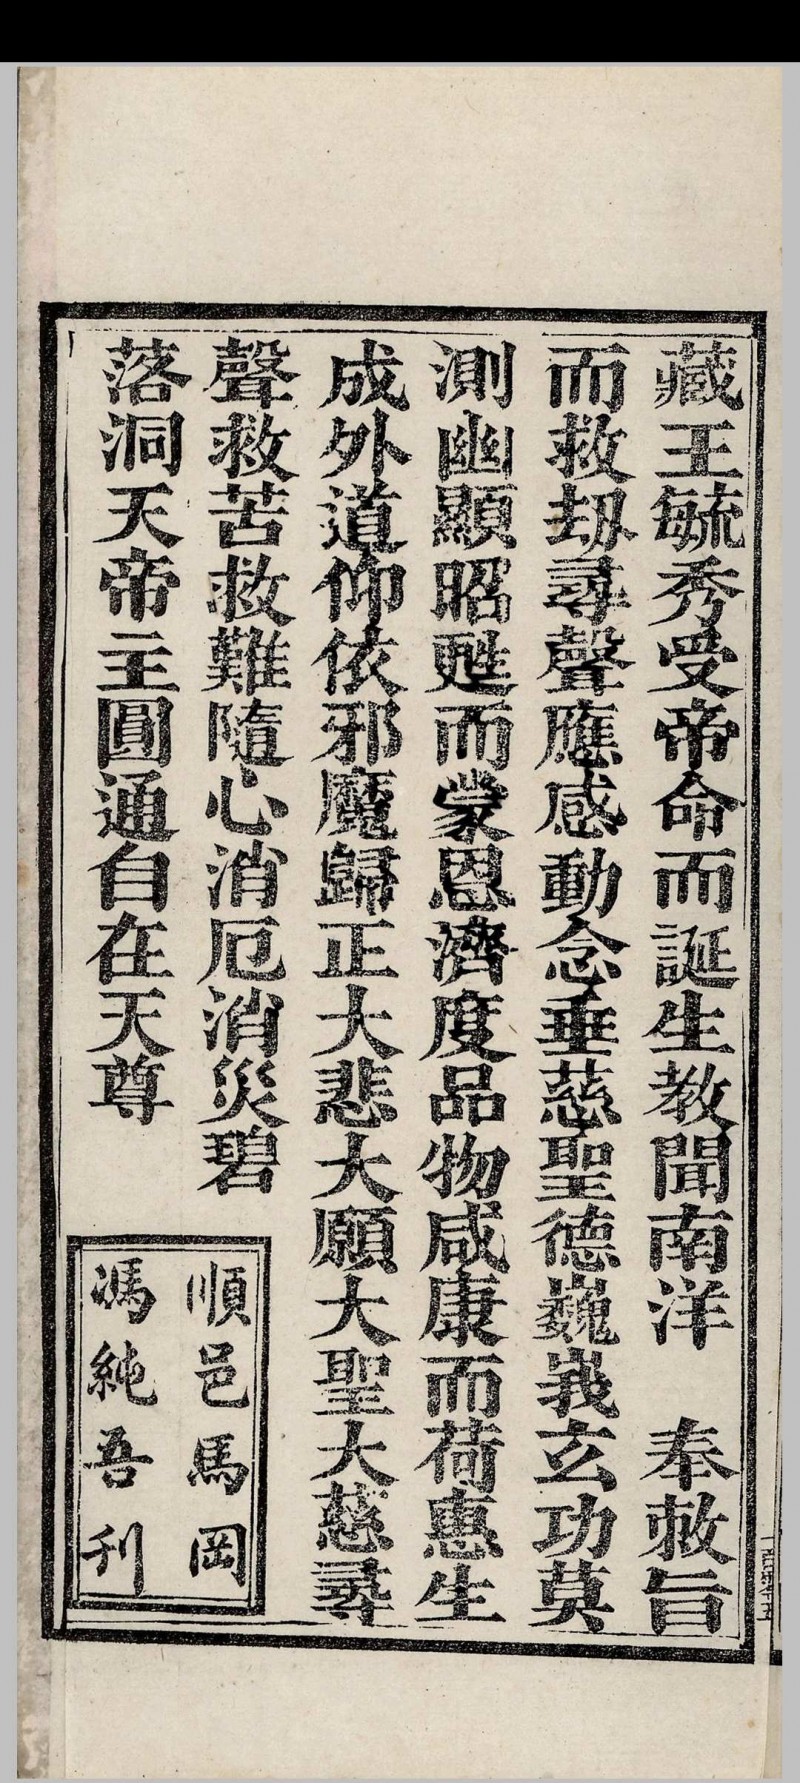 藏王毓秀受帝命而誕生教聞南洋　奉敕旨
而救劫尋聲應感動念垂慈聖德巍峩玄功莫
測幽顯昭甦而蒙恩濟度品物咸康而荷惠生
成外道仰依邪魔歸正大悲大願大聖大慈尋
聲救苦救難隨心消厄消災碧
落洞天帝主圓通自在天尊
順邑馬岡
馮純吾刊